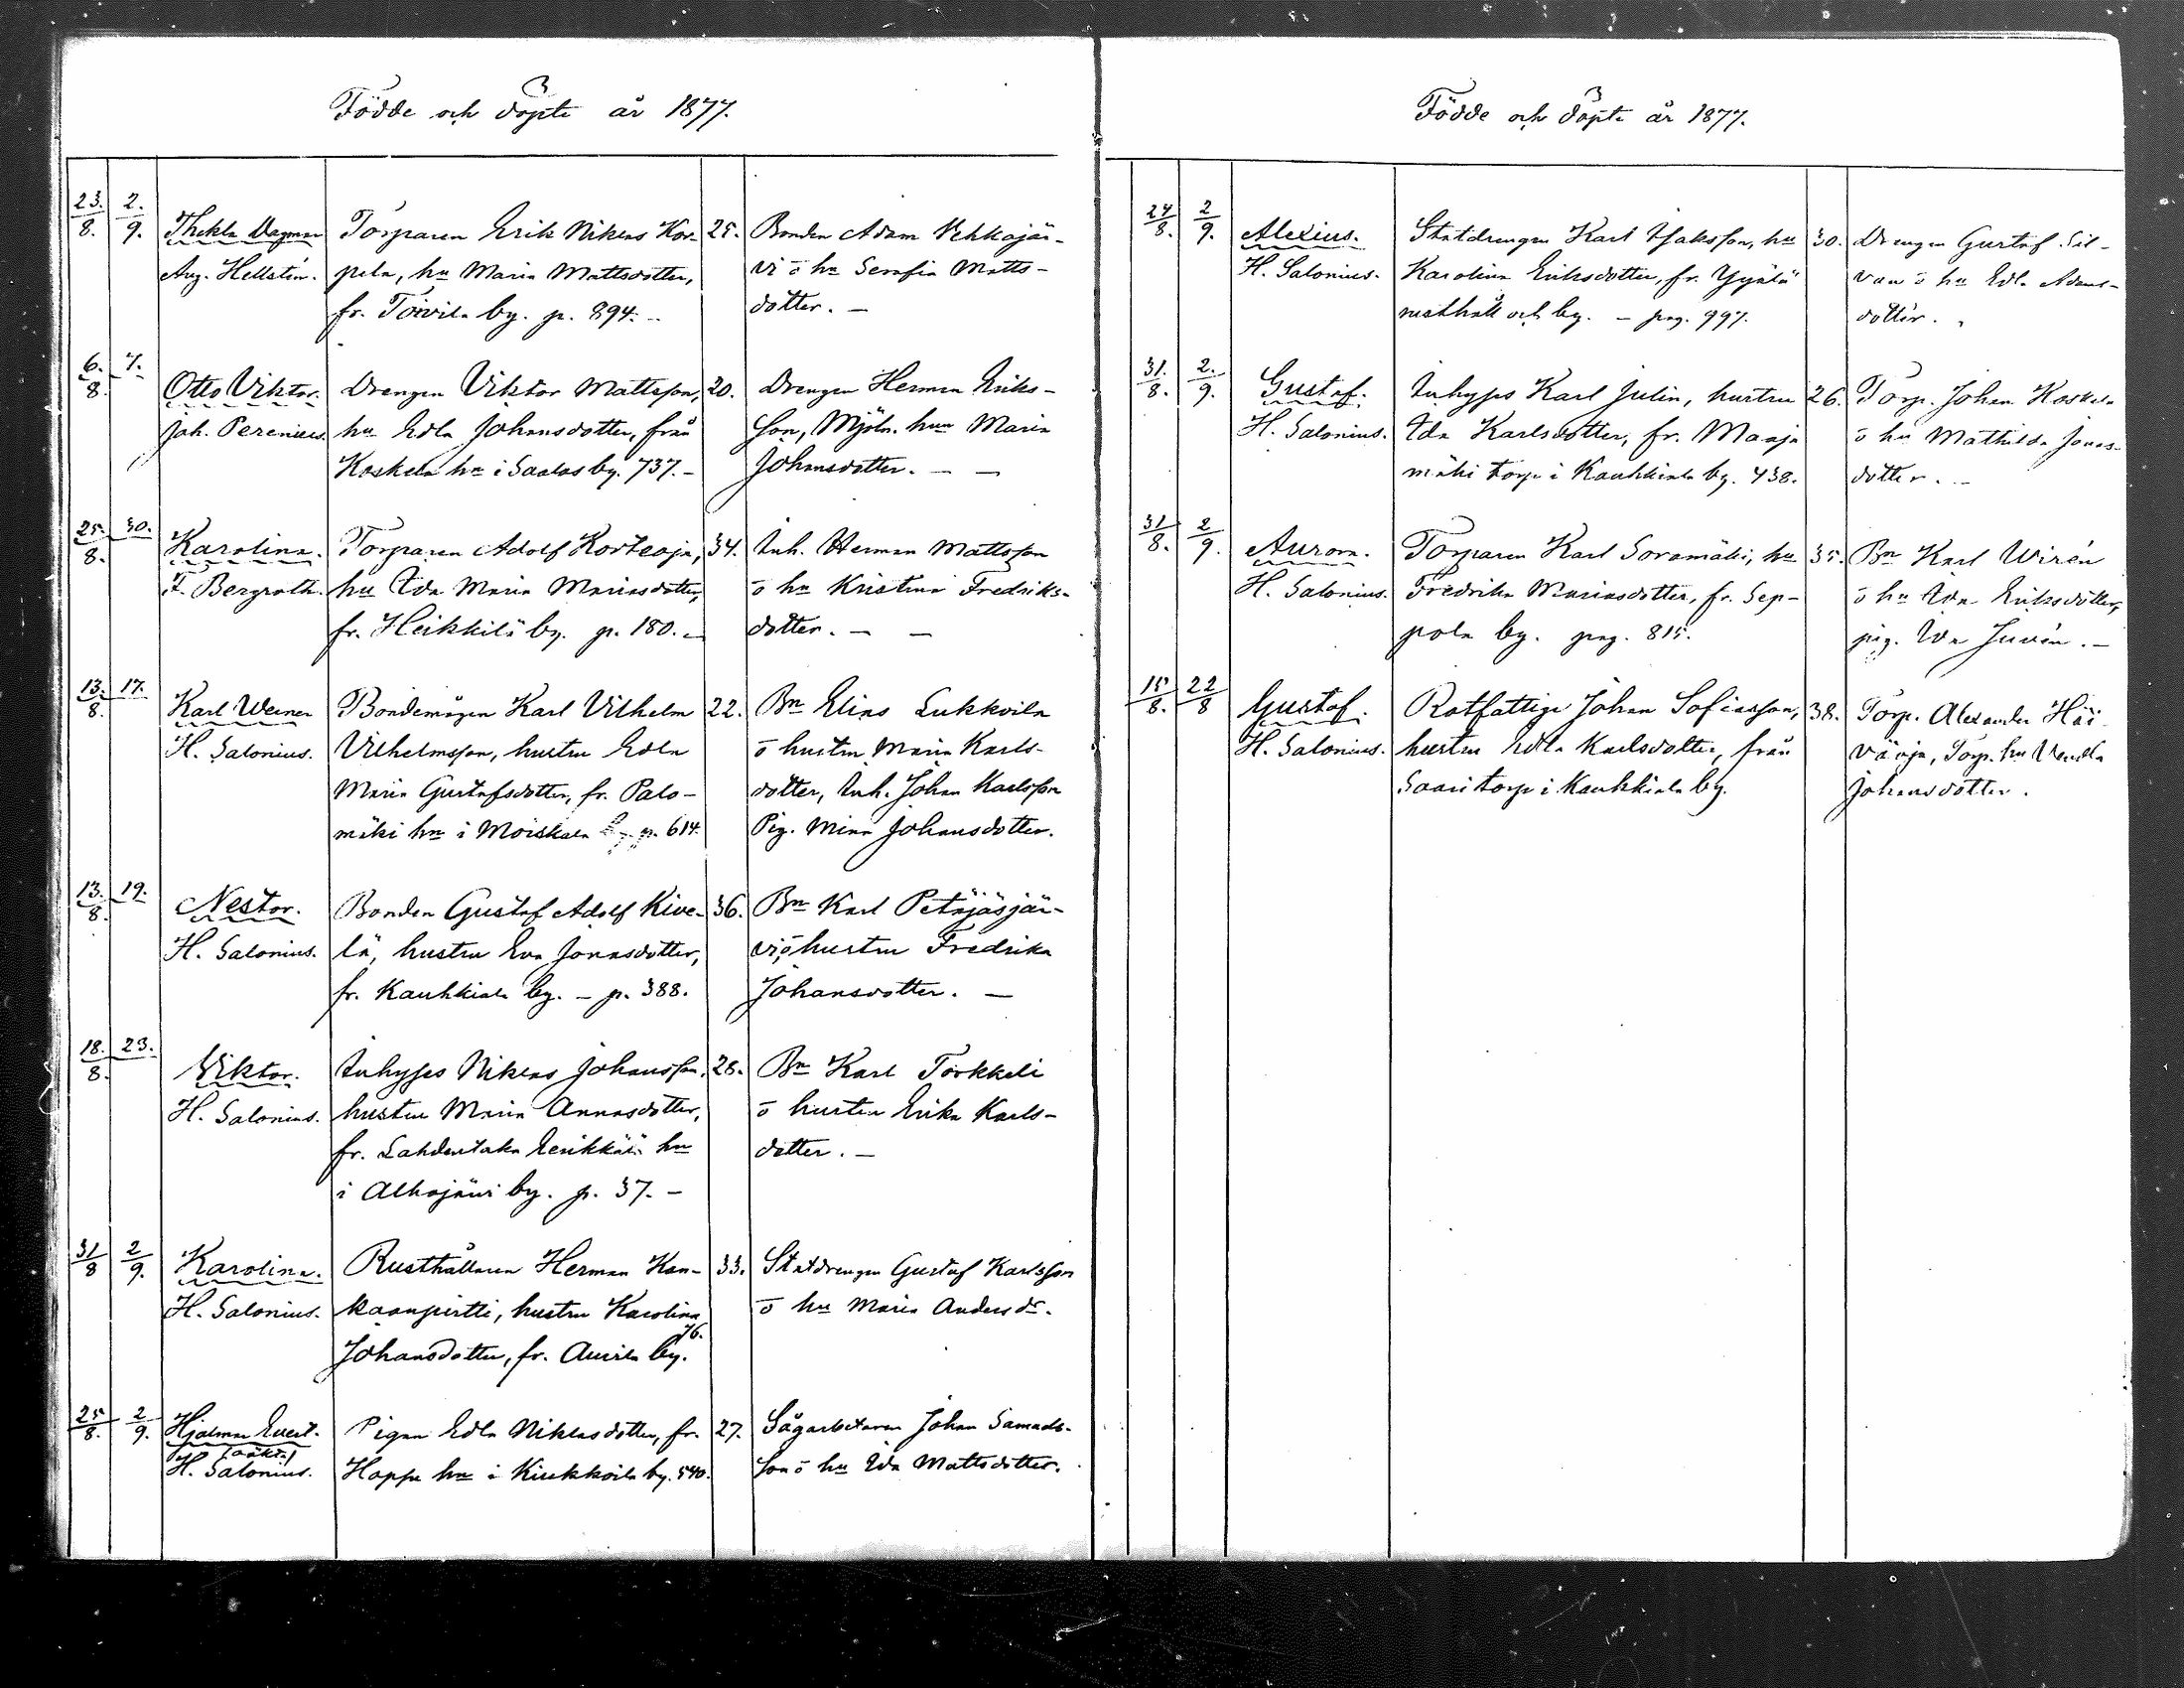 Födde och döpte år 1877.
23. 2. Thekla Dagmar Torparen Erik Niklas Kor- 25. Bonden Adam Vehkajär-
8. 9. Aug. Hellstén. pela, hu Maria Mattsdotter, vi o hu Serafia Matts-
fr. Torvila by. p. 894. dotter. —
6. 7. Otto Viktor. Drengen Viktor Mattsson, 20. Drengen Herman Eriks-
8. Joh. Perenius. hu Edla Johansdotter, från son, Mjöln. hun Maria
Koskela hn i Saalas by. 737. — Johansdotter. — —
25. 30. Karolina. Torparen Adolf Korteoja, 34. Inh. Herman Mattsson
8. F. Bergroth. hu Ida Maria Mariasdotter, o hu Kristina Fredriks-
fr. Heikkilä by. p. 180. — dotter. — —
13. 17. Karl Werner Bondemågen Karl Vilhelm 22. Bn Elias Lukkoila
8. H. Salonius. Vilhelmsson, hustru Edla o hustru Maria Karls-
Maria Gustafsdotter, fr. Palo- dotter, Inh. Johan Karlsson
mäki hn i Moiskala by. p. 614. Pig. Mina Johansdotter.
13. 19. Nestor. Bonden Gustaf Adolf Kive- 36. Bn Karl Petäjäsjär-
8. H. Salonius. lä, hustru Eva Jonasdotter, vi o hustru Fredrika
fr. Kauhkiala by. — p. 388. Johansdotter. —
18. 23. Viktor. Inhyses Niklas Johansson, 28. Bn Karl Torkkeli
8. H. Salonius. hustru Maria Annasdotter, o hustru Erika Karls-
fr. Lahdentaka hn dotter. —
i Alhojärvi by. p. 37. —
31 2 Karolina. Rusthållaren Herman Kan- 33. Statdrengen Gustaf Karlsson
8 9. H. Salonius. kaanpirtti, hustru Karolina o hu Maria Andersdr.
Johansdotter, fr. Auvila by. 76.
25 2 Hjalmar Evert. Pigan Edla Niklasdotter, fr. 27. Sågarbetaren Johan Samuels-
8. 9. (oäkta) H. Salonius. Hoppu hn i Kirkkoila by. 540. son o hu Ida Mattsdotter.
Födde och döpte år 1877.
24 2 Alexius. Statdrengen Karl Isaksson, hu 30. Drengen Gustaf Sil-
8. 9. H. Salonius. Karolina Eriksdotter, fr. Yyälä van o hu Edla Adams-
rusthåll och by. — pag. 997. dotter.
31. 2. Gustaf. Inhyses Karl Julin, hustru 26. Torp. Johan Koskela
8. 9. H. Salonius. Ida Karlsdotter, fr. Maaja o hu Mathilda Jonas-
mäki torp i Kauhkiala by. 438. dotter. —
31 2 Aurora. Torparen Karl Soramäki, hu 35. Bn Karl Wirén
8. 9. H. Salonius. Fredrika Mariasdotter, fr. Sep- o hu Ida Eriksdotter,
pola by. pag. 815. pig. Ida Juvén. —
15 22 Gustaf. Rotfattige Johan Sofiasson, 38. Torp. Alexander Häi-
8. 8 H. Salonius. hustru Edla Karlsdotter, från väoja, Torp. hu Vendla
Saari torp i Kauhkiala by. Johansdotter.